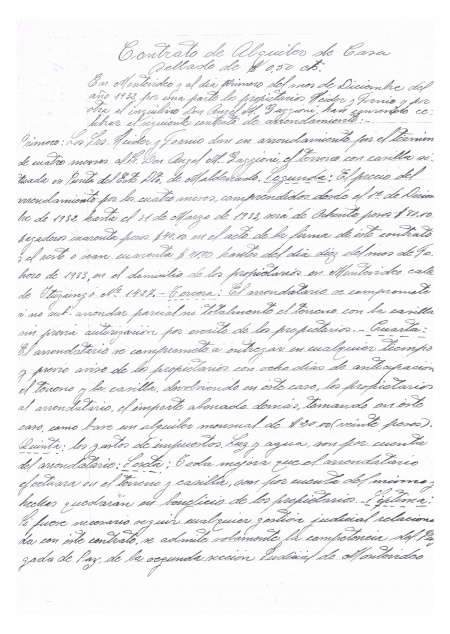 Contrato de Alquiler de Casa
sellado de $ 0,50 cts.
En Montevideo y el día primero del mes de Diciembre del
año 1932, por una parte los propietarios Heider y Fornio y por
otra el inquilino Don Angel M. Faggioni, han convenido ce-
lebrar el siguiente contrato de arrendamiento:-
Primero: Los Sres. Heider y Fornio dan en arrendamiento por el término
de cuatro meses al Sr. Don Angel M. Faggioni, el terreno con casilla si-
tuada en Punta del Este Dto. de Maldonado. Segunda: El precio del
arrendamiento por los cuatro meses, comprendidos desde el 1º de Diciem
bre de 1932 hasta el 31 de Marzo de 1933, será de Ochenta pesos $ 80.00
pagaderos cuarenta pesos $ 40.00 en el acto de la firma de este contrato
y el resto o sean cuarenta $ 40.00 hantes del día diez del mes de Fe-
brero de 1933, en el domicilio de los propietarios en Montevideo calle
de Ituzaingó Nº 1427.- Tercera: El arrendatario se compromete
a no sub-arrendar parcial ni totalmente el terreno con la casilla
sin previa autorización por escrito de los propietarios.- Cuarta:
El arrendatario se compromete a entregar en cualquier tiempo
y previo aviso de los propietarios con ocho días de anticipación
el terreno y la casilla, devolviendo en este caso, los propietarios
al arrendatario, el importe abonado demás, tomando en este
caso, como base un alquiler mensual de $ 20.00 (veinte pesos).
Quinta: los gastos de impuestos Luz y agua, son por cuenta
del arrendatario: Sexta: Toda mejora que el arrendatario
efectuara en el terreno y casilla, son por cuenta del mismo y
hechas quedarán en beneficio de los propietarios.- Séptima:
Si fuere necesario seguir cualquier gestión judicial relaciona
da con este contrato, se admite solamente la competencia del Juz
gado de Paz, de la segunda sección Judicial de Montevideo